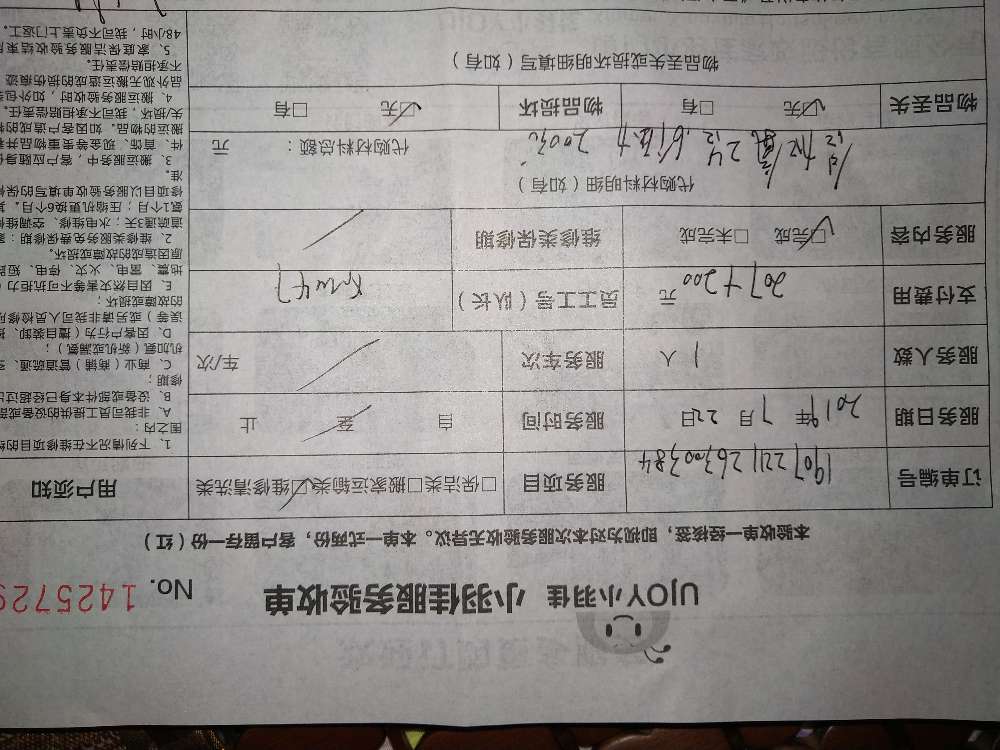 UJOY小羽佳 小羽佳服务验收单
No. 1425729
本验收单一经核签，即视为对本次服务验收无异议。本单一式两份，客户留存一份（红）
订单编号 服务项目 □保洁类□搬家运输类☑维修清洗类 用户须知
服务日期 2019年7月22日 服务时间 自 至 止
服务人数 1人 服务车次 车/次
支付费用 元 员工工号（队长）
服务内容 ☑完成 □未完成 维修类保修期
代购材料明细（如有）
代购材料总额： 元
物品丢失 ☑无 □有 物品损坏 ☑无 □有
物品丢失或损坏明细填写（如有）
1、下列情况不在维修项目的
围之内：
A、非我司员工提供的设备或
B、设备或部件本身已经超过
修期；
C、商业（商铺）管道疏通、
机加氨（新机或漏氨）；
D、因客户行为（擅自装卸、
误等）或另请非我司人员检修
的故障或损坏；
E、因自然灾害等不可抗拒力
地震、雷电、火灾、停电、短
原因造成的故障或损坏。
2、维修类服务免费保修期：
道疏通3天；水电维修、空调维
氨1个月；压缩机更换6个月。
修项目以服务验收单填写的保
准。
3、搬运服务中，客户应随身
件、首饰、现金等贵重物品并
搬运的物品，如因客户造成的
失损坏，我司不承担赔偿责任。
4、搬运服务验收时，如外包
品外观无搬运造成的损伤痕迹
不承担赔偿责任。
5、家庭保洁服务验收结束
48小时，我司不负责上门返工。